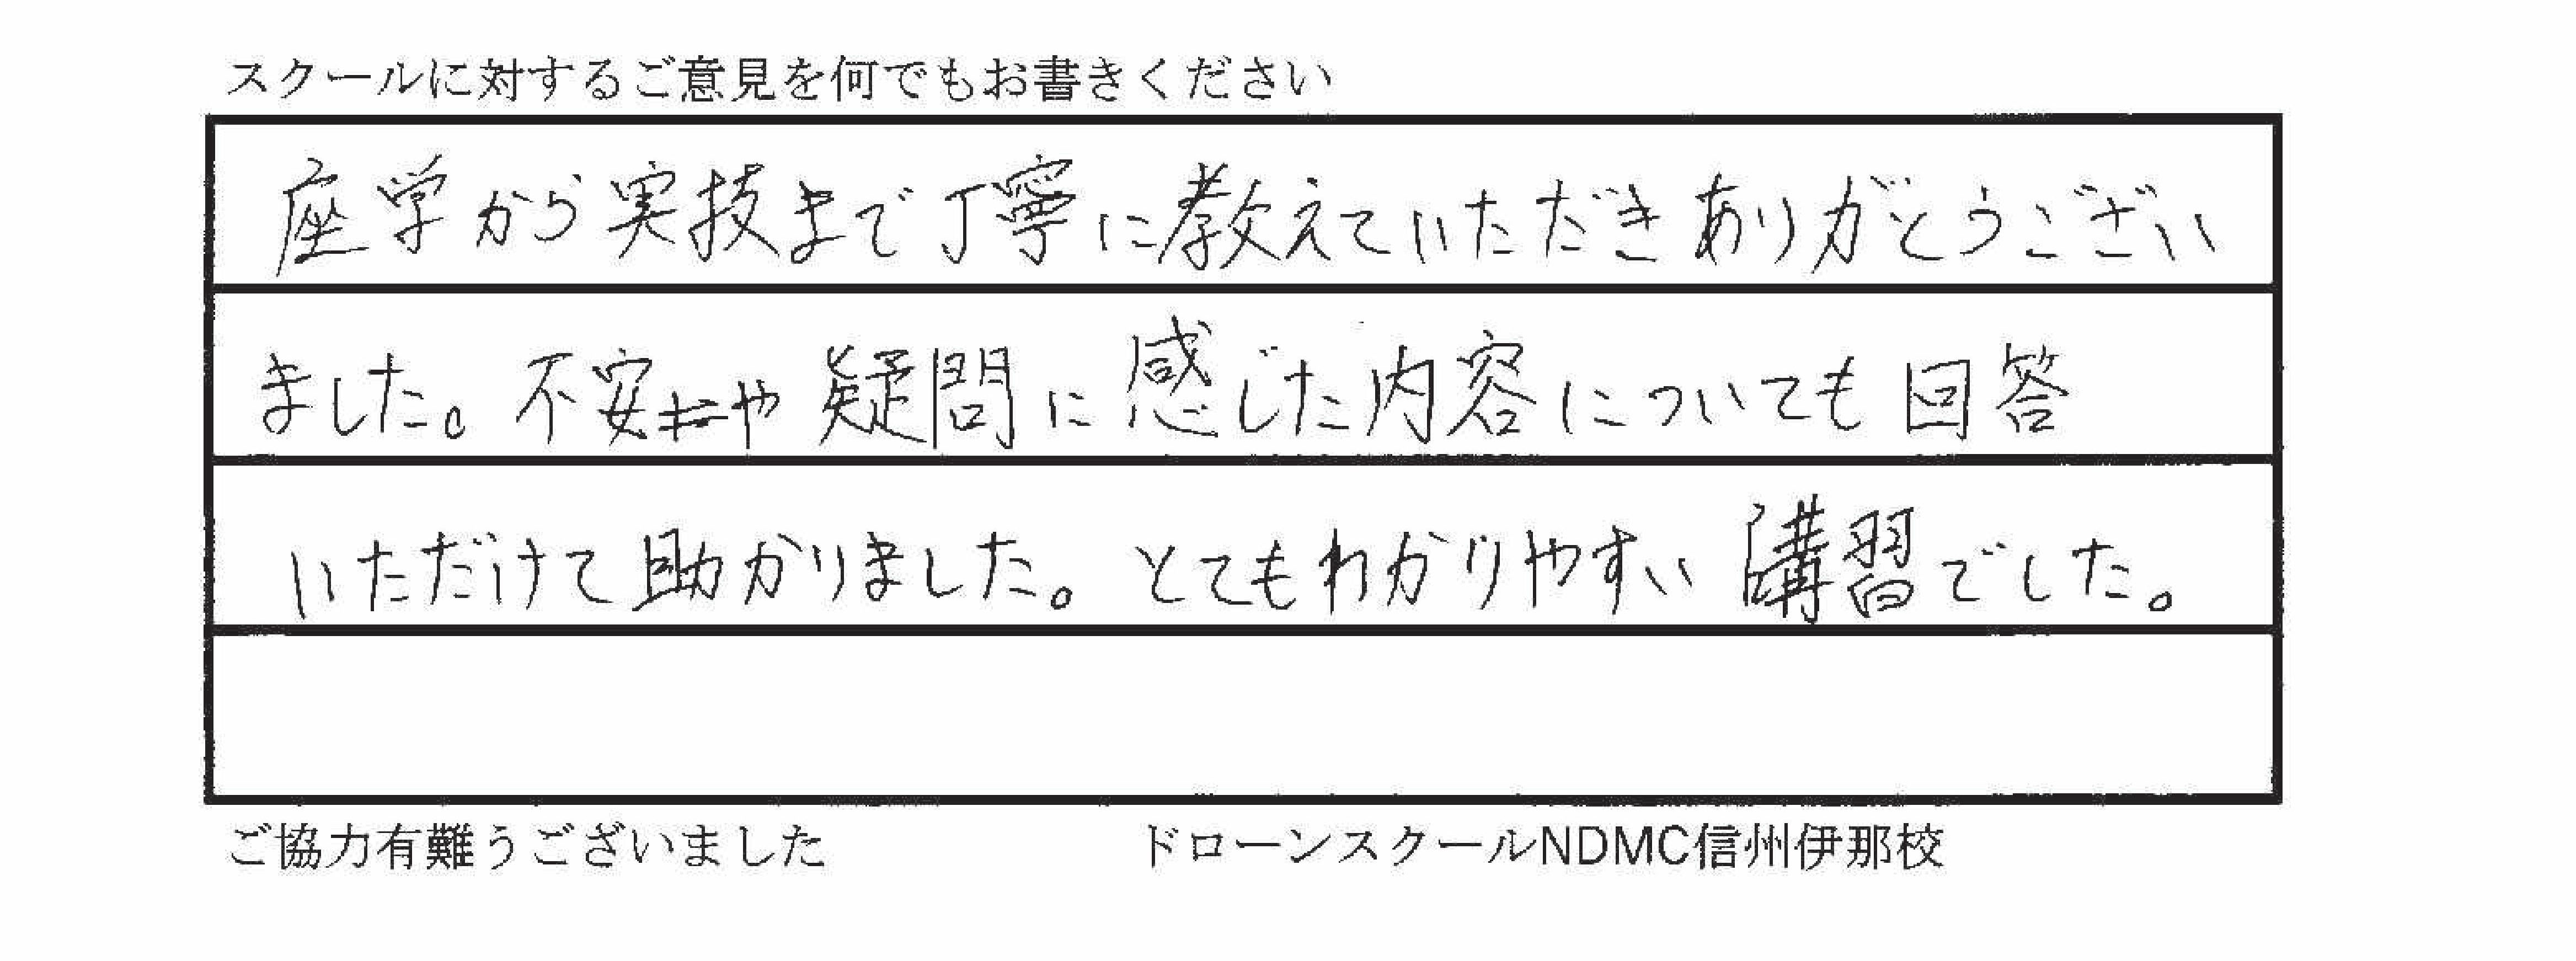 スクールに対するご意見を何でもお書きください
座学から実技まで丁寧に教えていただきありがとうござい
ました。不安や疑問に感じた内容についても回答
いただけて助かりました。とてもわかりやすい講習でした。
ご協力有難うございました ドローンスクールNDMC信州伊那校